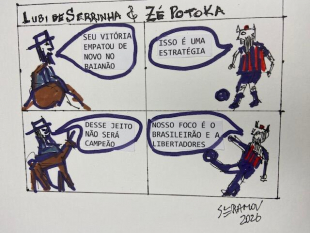 LUBI DE SERRINHA & ZÉ POTOKA
SEU VITÓRIA
EMPATOU DE
NOVO NO
BAIANÃO
ISSO É UMA
ESTRATÉGIA
DESSE JEITO
NÃO SERÁ
CAMPEÃO
NOSSO FOCO É O
BRASILEIRÃO E A
LIBERTADORES
SERAMOV
2026